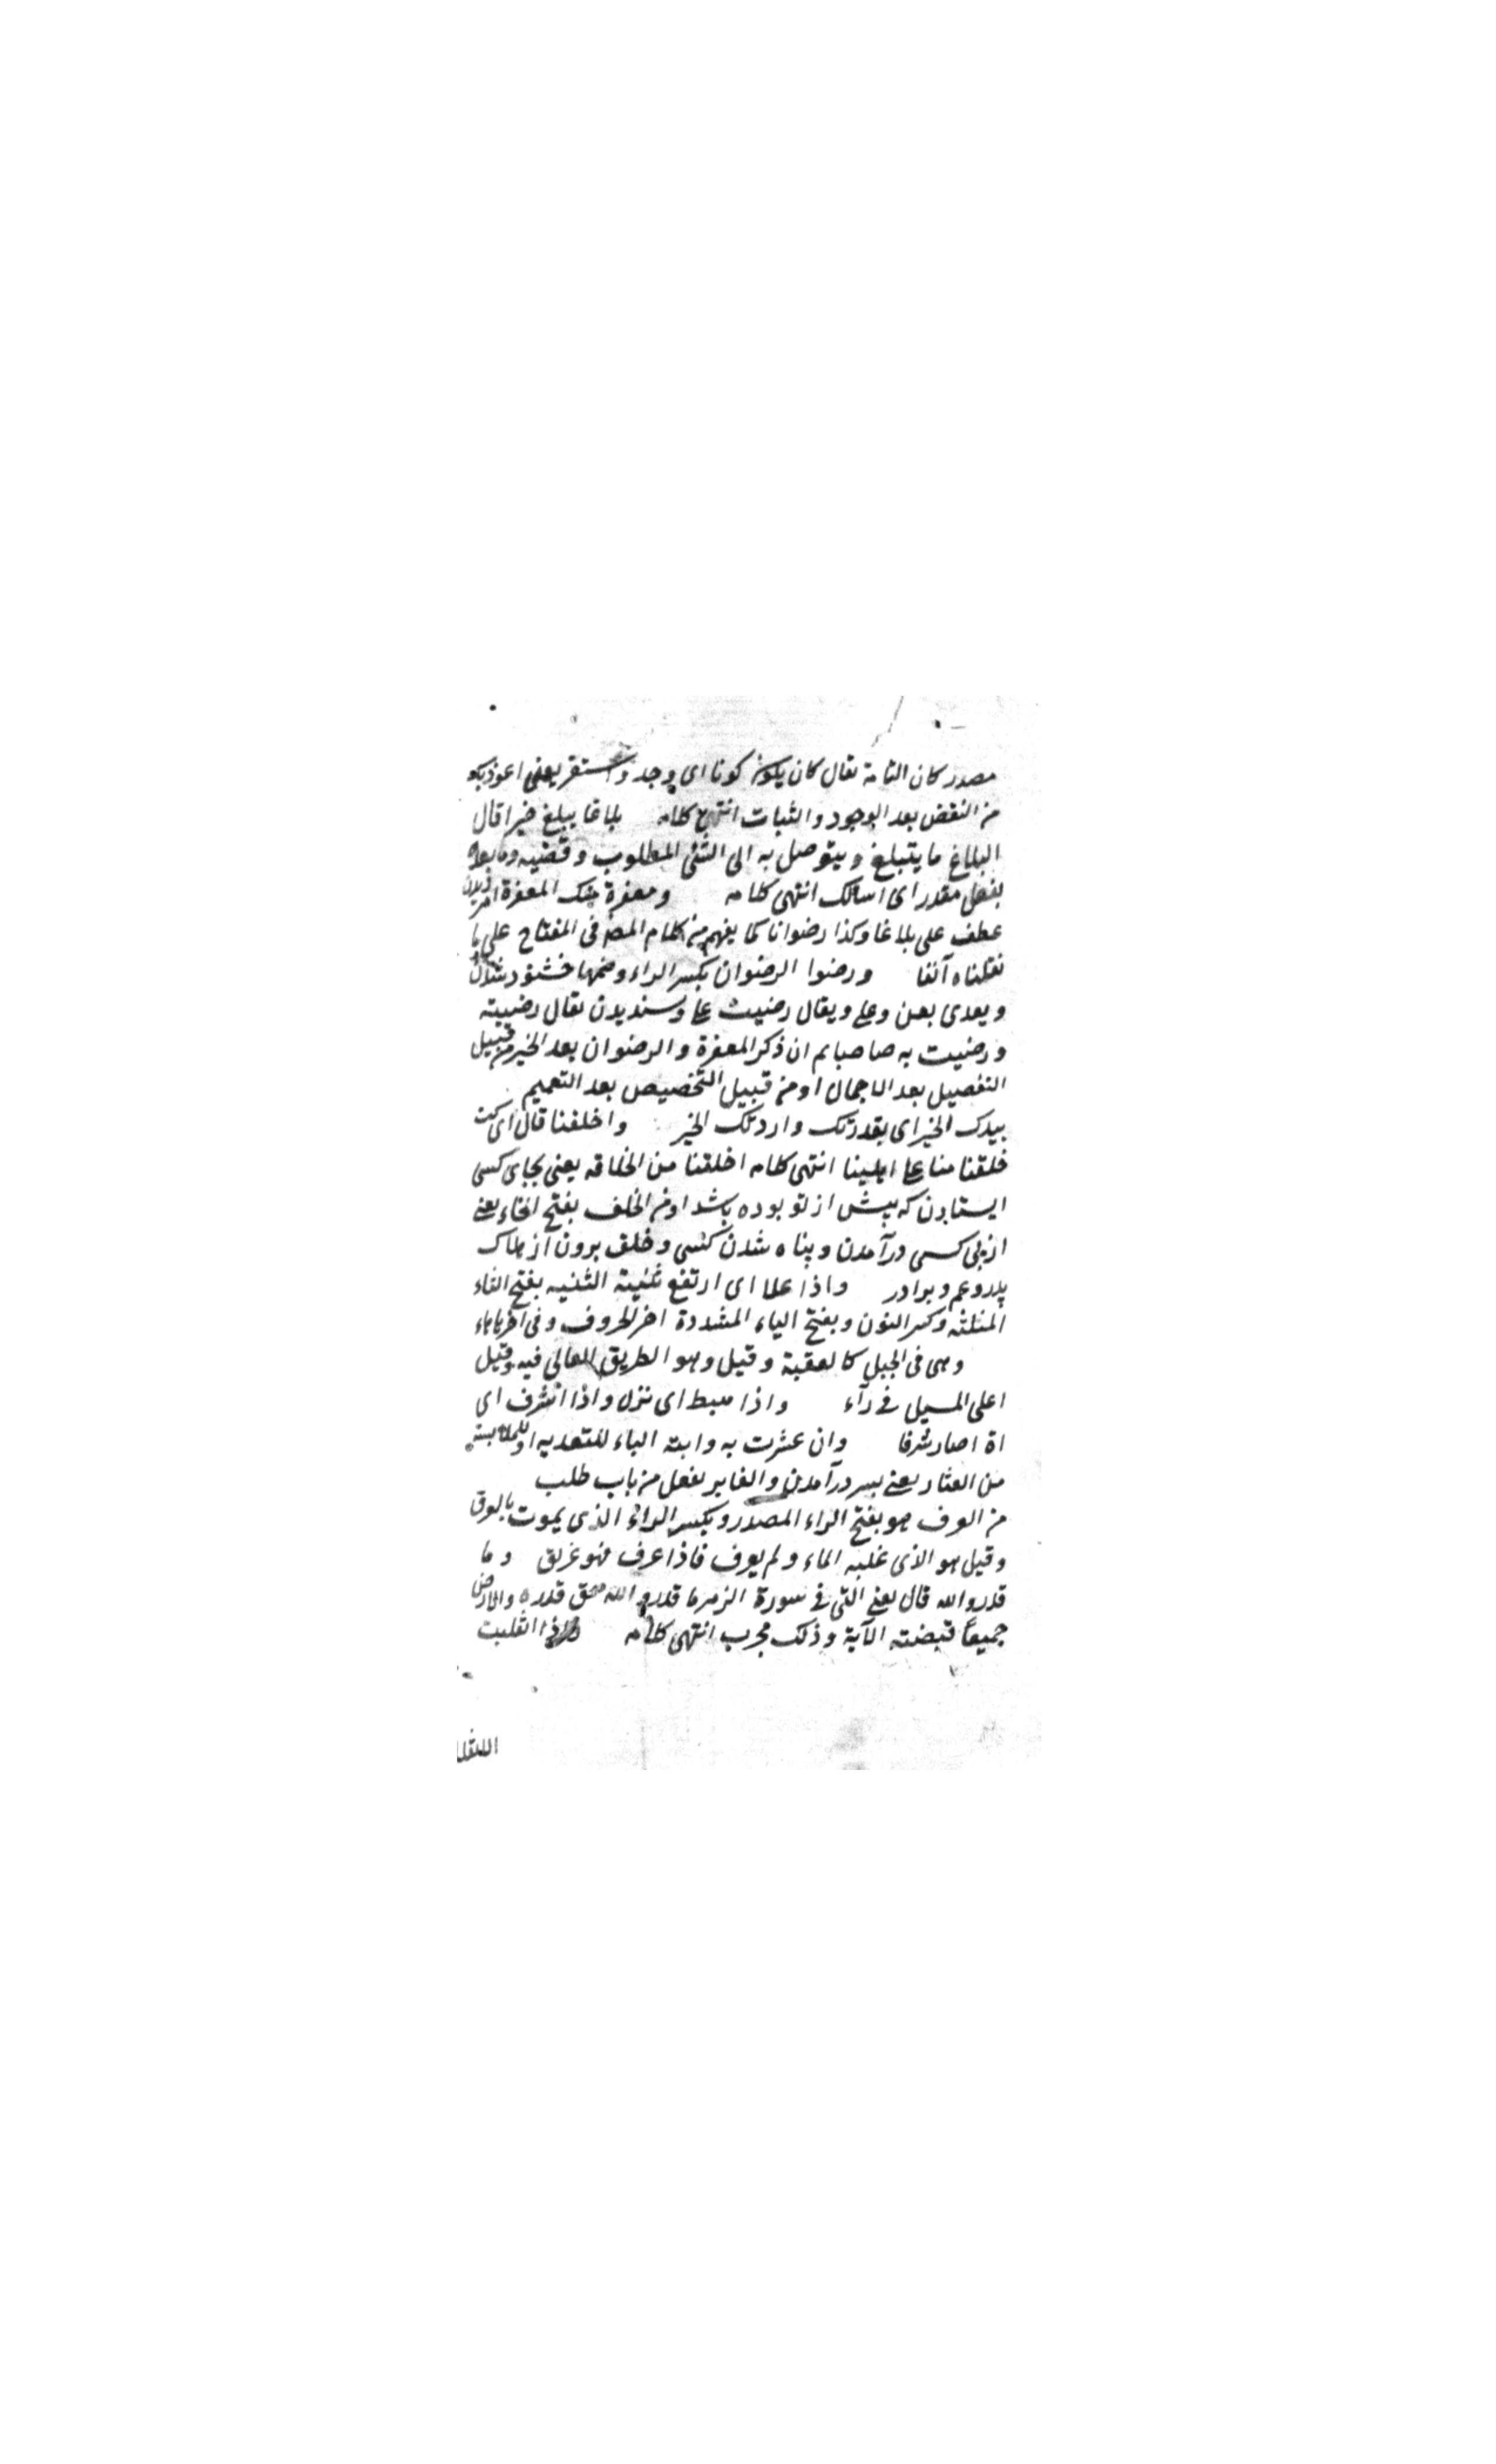 مصدر كان التامة يقال كان يكون كونا اى وجد واستقر يعنى اعوذ بك
من النقض بعد الوجود والثبات انتهى كلامه بلاغا يبلغ خيرا قال
البلاغ ما يتبلغ ويتوصل به الى الشئ المطلوب و نصبه وما بعده
بفعل مقدر اى اسالك انتهى كلامه ومغفرة منك المغفرة امرزيدن
عطف على بلاغا وكذا رضوانا كما يفهم من كلام المص فى المفتاح على ما
نقلناه آنفا ورضوا الرضوان بكسر الراء وضمها خشنود شدن
و يعدى بعن وعلى ويقال رضيت و پسنديدن يقال رضيته
ورضيت به صاحبا ثم ان ذكر المغفرة والرضوان بعد الخير من قبيل
التفصيل بعد الاجمال او من قبيل التخصيص بعد التعميم
بيدك الخير اى بقدرتك وارادتك الخير واخلفنا قال اى كن
خلفنا منا على اهلينا انتهى كلامه اخلفنا من الخلافه يعنى بجاى كسى
ايستادن كه پيش از تو بوده باشد او من الخلف بفتح الخاء يعنى
از پى كسى درآمدن و پناه شدن كسى و خلف برون از هلاك
پدر و عم و برادر واذا علا اى ارتفع ثنية الثنيه بفتح الثاء
المثلثه وكسر النون وبفتح الياء المشددة اخر الحروف وفى اخرها هاء
وهى فى الجبل كالعقبة وقيل وهو الطريق العالى فيه وقيل
اعلى المسيل فى رآء واذا هبط اى نزل واذا اشرف اى
اذا صار شرفا وان عثرت به دابته الباء للتعديه او للملابسة
من العثار يعنى بسر درآمدن والغابر يفعل من باب طلب
من الغرق هو بفتح الراء المصدر وبكسر الراء الذى يموت بالغرق
وقيل هو الذى غلبه الماء ولم يغرق فاذا غرق فهو غريق وما
قدروا الله قال يعنى التى فى سورة الزمر ما قدروا الله حق قدره والارض
جميعا قبضته الآية وذلك مجرب انتهى كلامه واذا انفلتت